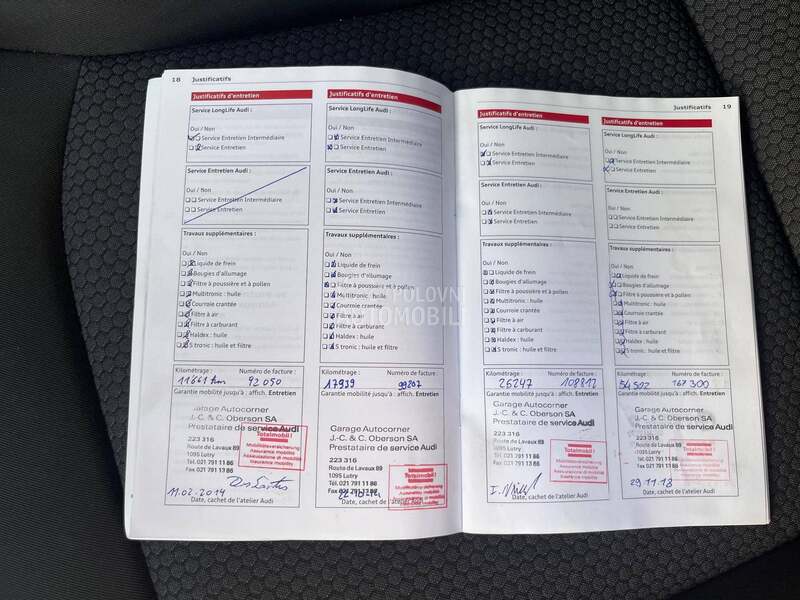 18 Justificatifs
Justificatifs d'entretien
Service LongLife Audi :
Oui / Non
Service Entretien Intermédiaire
Service Entretien
Service Entretien Audi :
Oui / Non
Service Entretien Intermédiaire
Service Entretien
Travaux supplémentaires :
Oui / Non
Liquide de frein
Bougies d'allumage
Filtre à poussière et à pollen
Multitronic : huile
Courroie crantée
Filtre à air
Filtre à carburant
Haldex : huile
S tronic : huile et filtre
Kilométrage : Numéro de facture :
11661 km 92 050
Garantie mobilité jusqu'à : affich. Entretien
Garage Autocorner
J.-C. & C. Oberson SA
Prestataire de service Audi
Totalmobil!
Mobilitätsversicherung
Assurance mobilité
Assicurazione di mobilità
Assurance mobility
223 316
Route de Lavaux 89
1095 Lutry
Tél. 021 791 11 86
Fax 021 791 13 86
11.02.2014
Date, cachet de l'atelier Audi
Justificatifs d'entretien
Service LongLife Audi :
Oui / Non
Service Entretien Intermédiaire
Service Entretien
Service Entretien Audi :
Oui / Non
Service Entretien Intermédiaire
Service Entretien
Travaux supplémentaires :
Oui / Non
Liquide de frein
Bougies d'allumage
Filtre à poussière et à pollen
Multitronic : huile
Courroie crantée
Filtre à air
Filtre à carburant
Haldex : huile
S tronic : huile et filtre
Kilométrage : Numéro de facture :
17939 99207
Garantie mobilité jusqu'à : affich. Entretien
Garage Autocorner
J.-C. & C. Oberson SA
Prestataire de service Audi
223 316
Route de Lavaux 89
1095 Lutry
Tél. 021 791 11 86
Fax 021 791 13 86
Totalmobil!
22-10-14
Date, cachet de l'atelier Audi
Justificatifs 19
Justificatifs d'entretien
Service LongLife Audi :
Oui / Non
Service Entretien Intermédiaire
Service Entretien
Service Entretien Audi :
Oui / Non
Service Entretien Intermédiaire
Service Entretien
Travaux supplémentaires :
Oui / Non
Liquide de frein
Bougies d'allumage
Filtre à poussière et à pollen
Multitronic : huile
Courroie crantée
Filtre à air
Filtre à carburant
Haldex : huile
S tronic : huile et filtre
Kilométrage : Numéro de facture :
26247 108812
Garantie mobilité jusqu'à : affich. Entretien
Garage Autocorner
J.-C. & C. Oberson SA
Prestataire de service Audi
223 316
Route de Lavaux 89
1095 Lutry
Tél. 021 791 11 86
Fax 021 791 13 86
Totalmobil!
Date, cachet de l'atelier Audi
Justificatifs d'entretien
Service LongLife Audi :
Oui / Non
Service Entretien Intermédiaire
Service Entretien
Service Entretien Audi :
Oui / Non
Service Entretien Intermédiaire
Service Entretien
Travaux supplémentaires :
Oui / Non
Liquide de frein
Bougies d'allumage
Filtre à poussière et à pollen
Multitronic : huile
Courroie crantée
Filtre à air
Filtre à carburant
Haldex : huile
S tronic : huile et filtre
Kilométrage : Numéro de facture :
54502 167 300
Garantie mobilité jusqu'à : affich. Entretien
Garage Autocorner
J.-C. & C. Oberson SA
Prestataire de service Audi
223 316
Route de Lavaux 89
1095 Lutry
Tél. 021 791 11 86
Fax 021 791 13 86
Totalmobil!
29 11 18
Date, cachet de l'atelier Audi